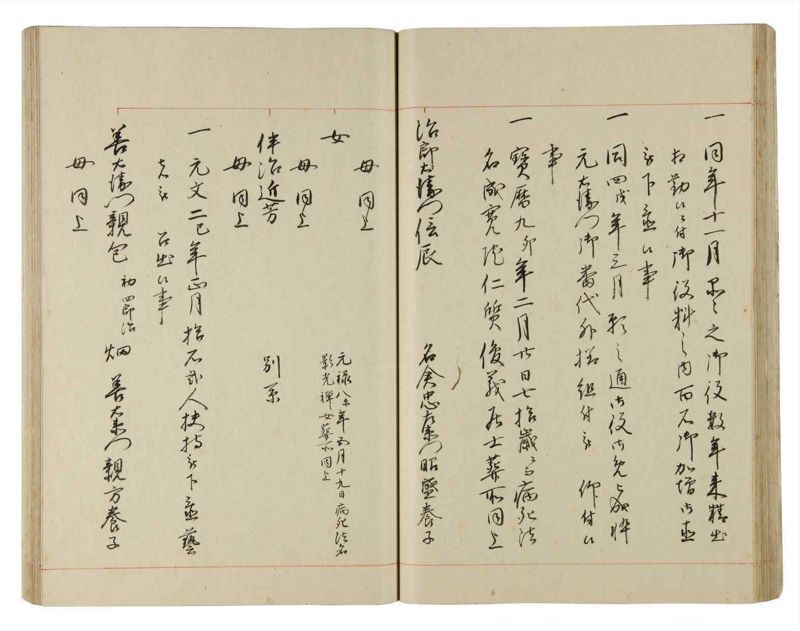 一 同年十一月 之御役数年来精出
相勤候ニ付御役料之内百石御加増
被下 候事
一 同四戌年三月願之通御役御免
元右衛門御當代外様組付被 仰付候
事
一 寶暦九卯年二月廿日七拾歳ニ而病死法
名成寛院仁質俊義居士葬所同上
治郎右衛門信辰 名倉忠左衛門昭盛養子
母同上
女 元禄八亥年五月十九日病死法名
影光禅女葬所同上
母同上
伴治近芳 別系
母同上
一 元文二巳年正月拾石弐人扶持被下 藝
者被 召出候事
善右衛門親包 初四郎治 畑 善右衛門親方養子
母同上